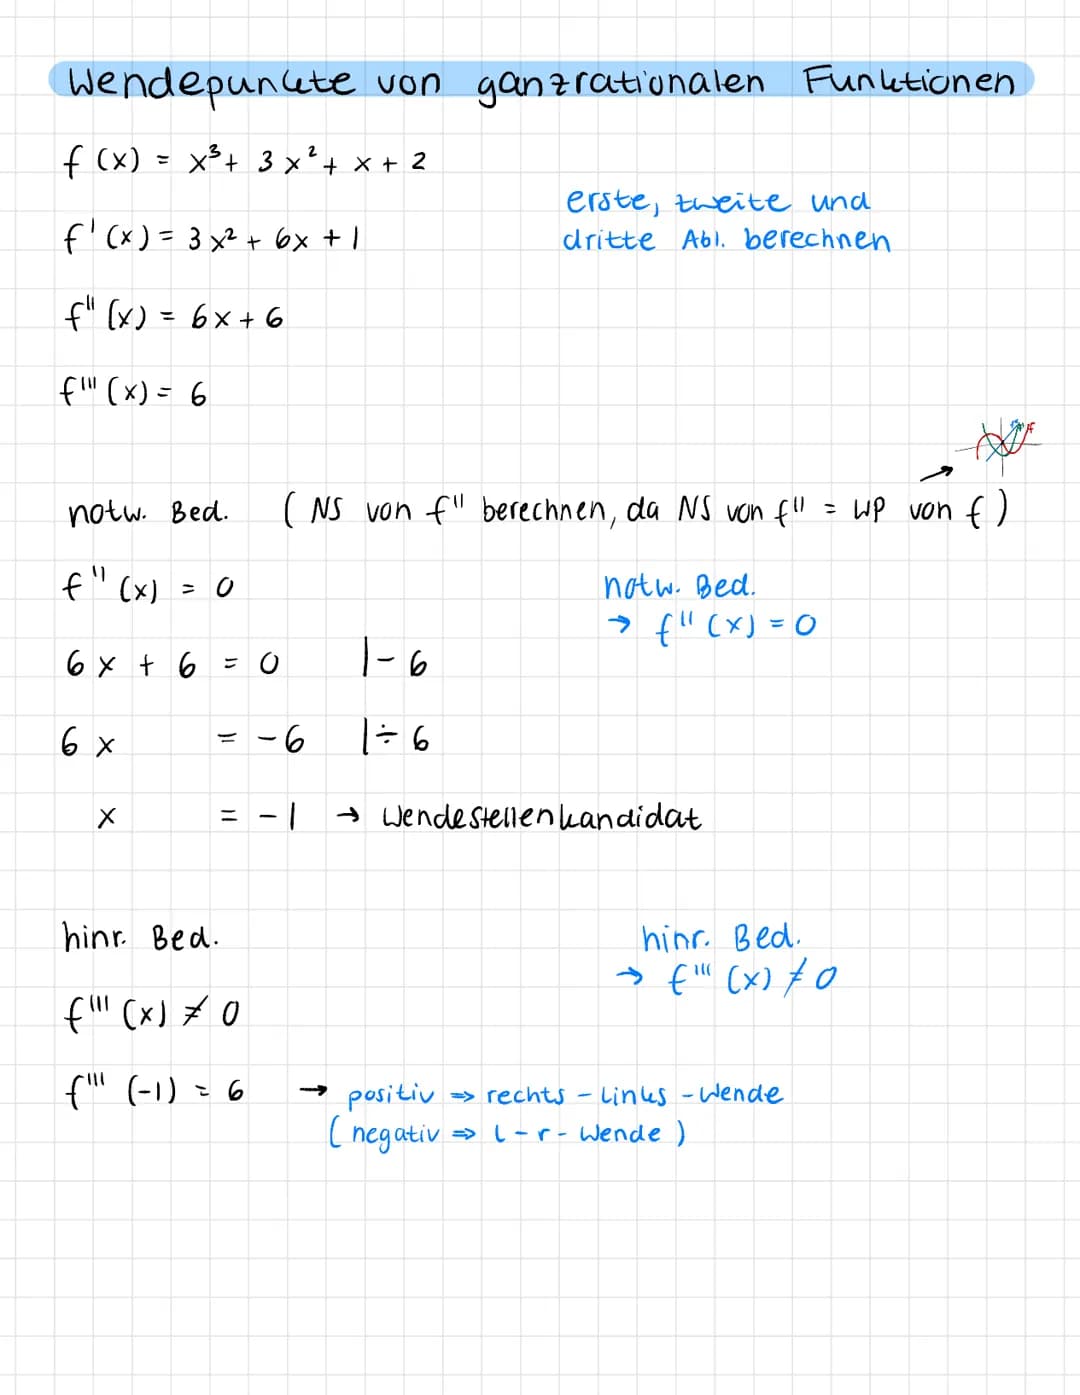 Wendepunkte von ganzrationalen Funktionen
f (x) = x³ + 3x² + x + 2
erste, zweite und
f'(x) = 3x² + 6x + 1
dritte Abl. berechnen
f"(x) = 6x + 6
f'''(x) = 6
notw. Bed. ( NS von f" berechnen, da NS von f" = WP von f )
f"(x) = 0
notw. Bed.
→ f"(x) = 0
6x + 6 = 0 |-6
6x = -6 |÷6
x = -1 → Wendestellenkandidat
hinr. Bed.
hinr. Bed.
→ f'''(x) ≠ 0
f'''(x) ≠ 0
f'''(-1) = 6 → positiv => rechts-links-Wende
( negativ => l-r-Wende )